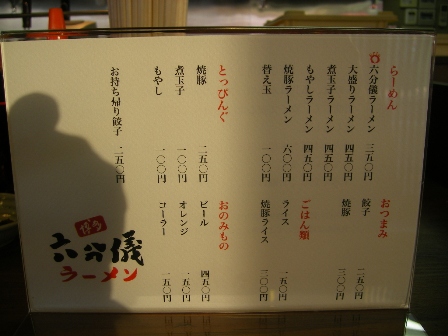 らーめん
六分儀ラーメン 三五〇円
大盛りラーメン 四五〇円
煮玉子ラーメン 四五〇円
もやしラーメン 四五〇円
焼豚ラーメン 六〇〇円
替え玉 一〇〇円
とっぴんぐ
焼豚 二五〇円
煮玉子 一〇〇円
もやし 一〇〇円
お持ち帰り餃子 二五〇円
おつまみ
餃子 二五〇円
焼豚 三〇〇円
ごはん類
ライス 一五〇円
焼豚ライス 三〇〇円
おのみもの
ビール 四五〇円
オレンジ 一五〇円
コーラー 一五〇円
六分儀
ラーメン